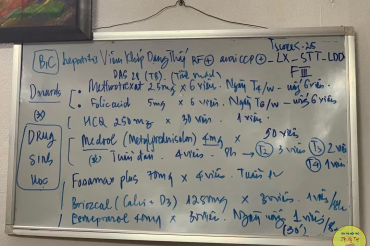 BiC Viêm Khớp Dạng Thấp RF⊕ anti CCP⊕ _ LX _ STT _ LDD
DAS 28 (TB).
• Methotrexat 2.5mg x 6 viên. Ngày T4/w - uống 6 viên
• Folic acid 5mg x 6 viên. Ngày T6/w - uống 6 viên
HCQ 250mg x 30 viên. 1 viên
DRUG
SINS
Medrol (Metylprednisolon) 4mg x 30 viên
Tuần đầu. 4 viên. 8h → T2 3 viên T3 2 viên
T4 1 viên
Fosamax plus 70mg x 4 viên. Tuần 1v
Briozcal (Calci + D3) 125mg x 30 viên. 1 viên/8h
Esomeprazol 40mg x 30 viên. Ngày uống 1 viên/8h
(30')